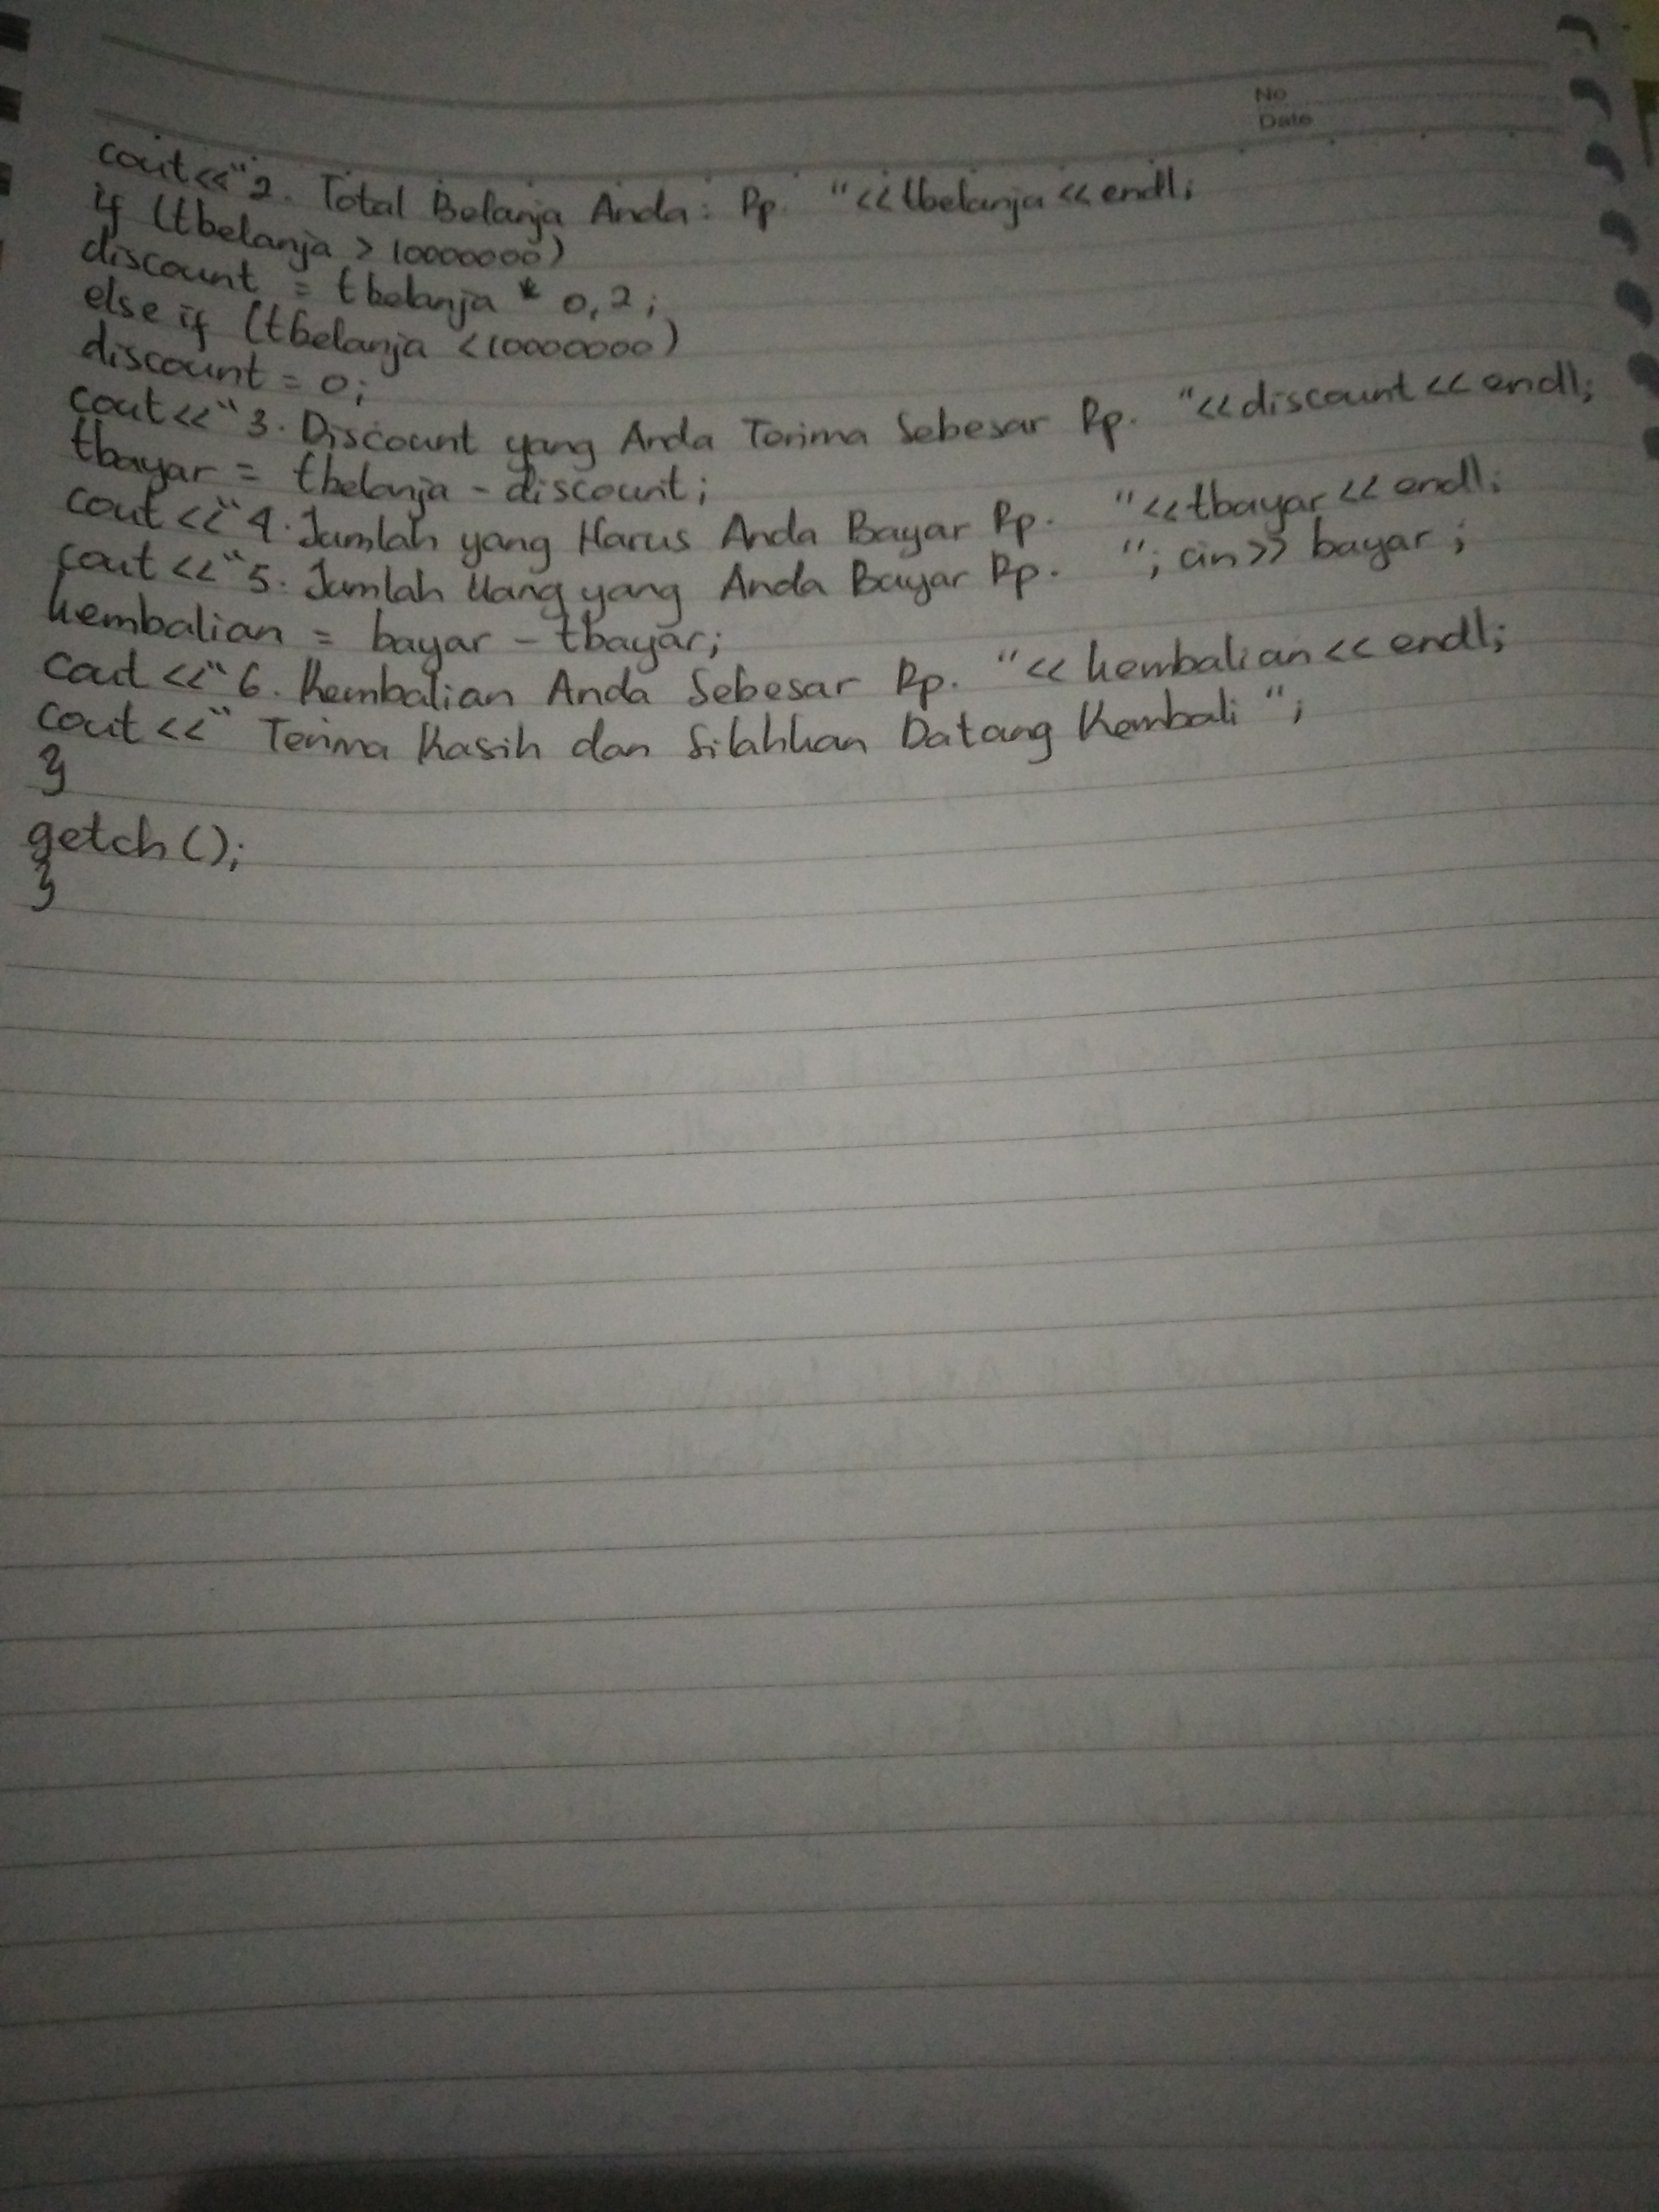 No
Date
cout<<"2. Total Belanja Anda: Rp. "<<tbelanja<<endl;
if (tbelanja > 10000000)
discount = tbelanja * 0,2;
else if (tbelanja <10000000)
discount = 0;
cout<<"3. Discount yang Anda Terima Sebesar Rp. "<<discount<<endl;
tbayar = tbelanja - discount;
cout<<"4. Jumlah yang Harus Anda Bayar Rp. "<<tbayar<<endl;
cout<<"5. Jumlah Uang yang Anda Bayar Rp. "; cin>>bayar;
kembalian = bayar - tbayar;
cout<<"6. Kembalian Anda Sebesar Rp. "<<kembalian<<endl;
cout<<" Terima Kasih dan Silahkan Datang Kembali ";
}
getch();
}